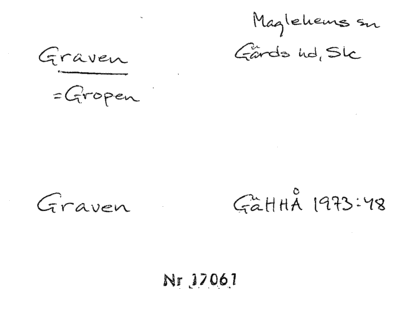 Maglehems sn
Graven
Gärds hd, Sk
=Gropen
Graven
GäHHÅ 1973:48
Nr 17061